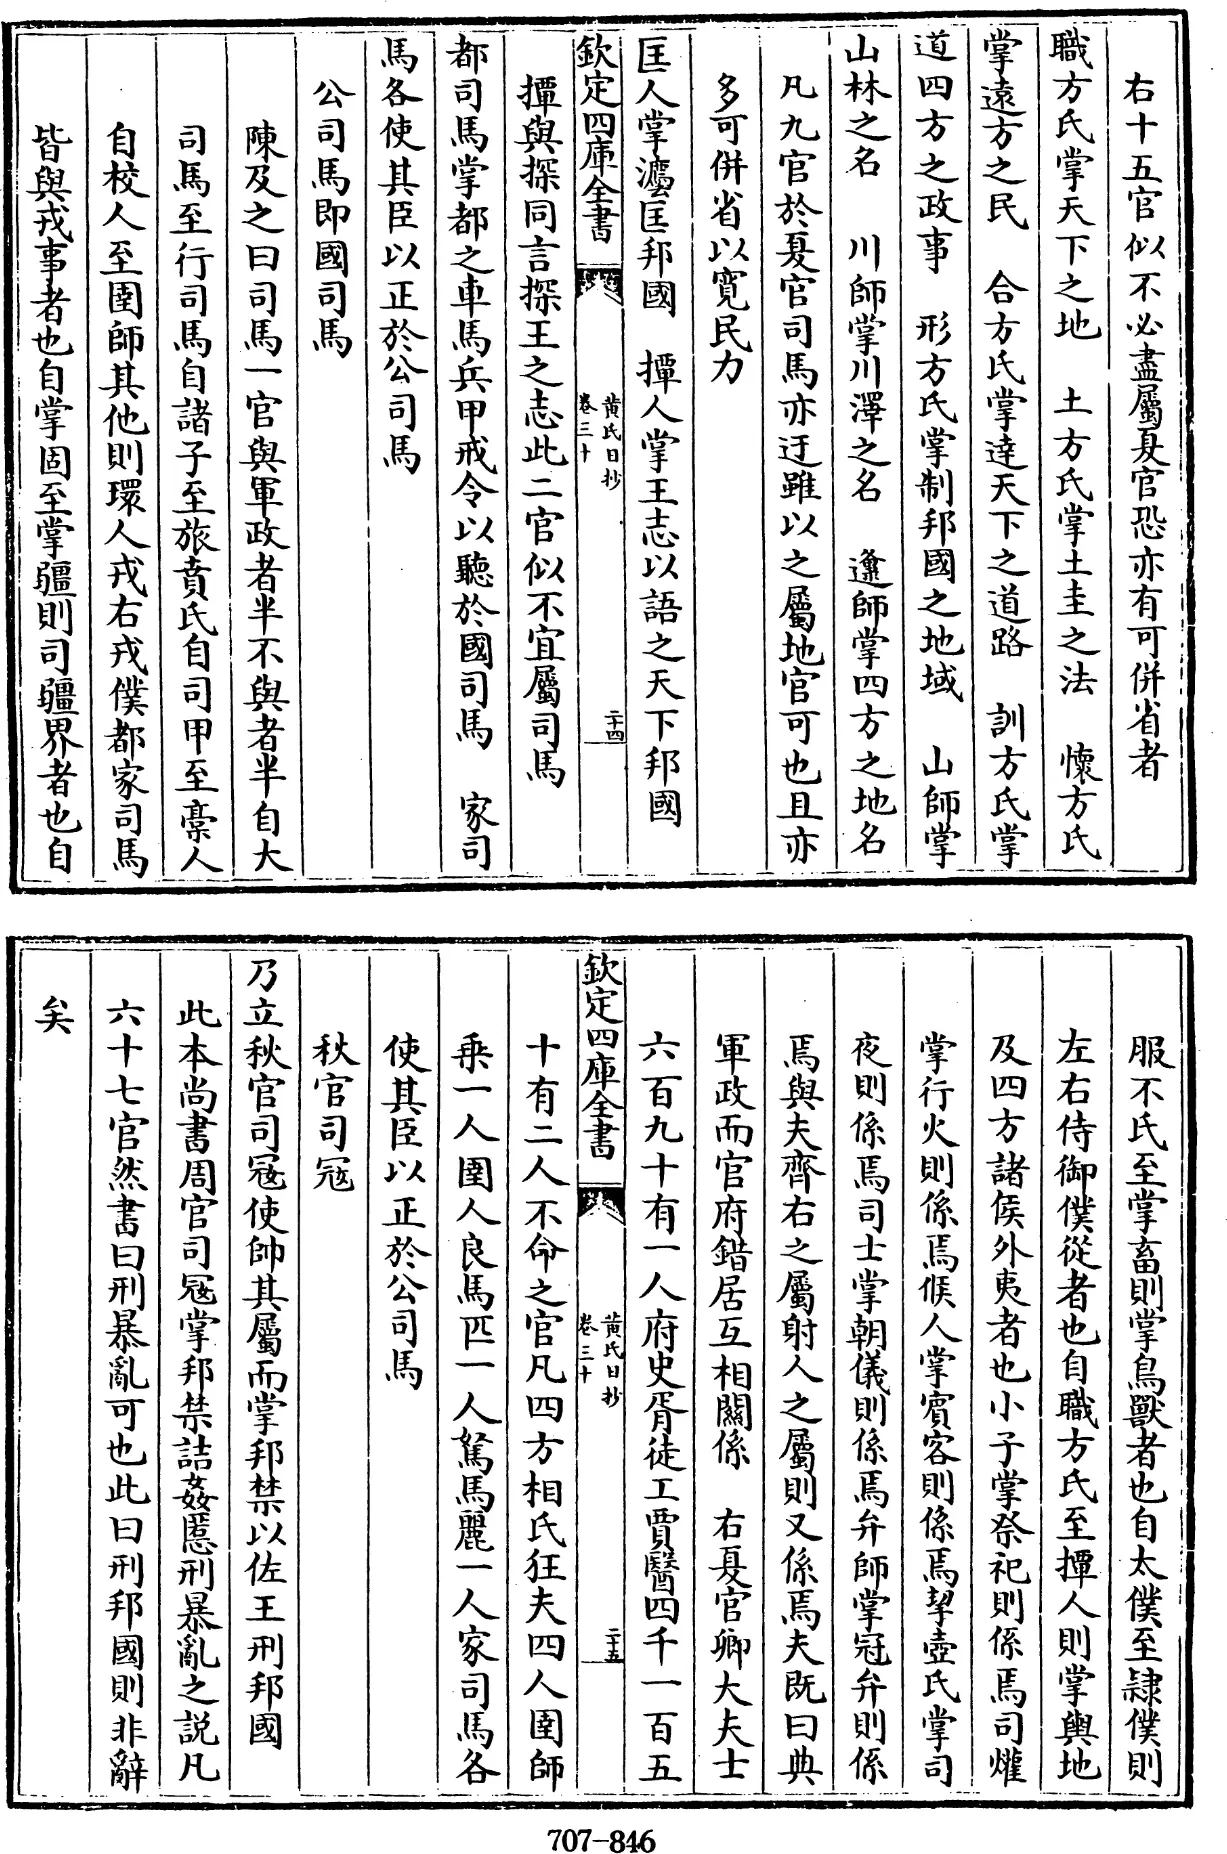 右十五官似不必盡屬夏官恐亦有可併省者
職方氏掌天下之地　土方氏掌土圭之法　懷方氏
掌遠方之民　合方氏掌達天下之道路　訓方氏掌
道四方之政事　形方氏掌制邦國之地域　山師掌
山林之名　川師掌川澤之名　邍師掌四方之地名
凡九官於夏官司馬亦迂雖以之屬地官可也且亦
多可併省以寛民力
匡人掌灋匡邦國　撢人掌王志以語之天下邦國
欽定四庫全書
黄氏日抄
卷三十
二十四
撢與探同言探王之志此二官似不宜屬司馬
都司馬掌都之車馬兵甲戒令以聽於國司馬　家司
馬各使其臣以正於公司馬
公司馬即國司馬
陳及之曰司馬一官與軍政者半不與者半自大
司馬至行司馬自諸子至旅賁氏自司甲至稾人
自校人至圉師其他則環人戎右戎僕都家司馬
皆與戎事者也自掌固至掌疆則司疆界者也自
服不氏至掌畜則掌鳥獸者也自太僕至隸僕則
左右侍御僕從者也自職方氏至撢人則掌輿地
及四方諸侯外夷者也小子掌祭祀則係焉司爟
掌行火則係焉候人掌賓客則係焉挈壺氏掌司
夜則係焉司士掌朝儀則係焉弁師掌冠弁則係
焉與夫齊右之屬射人之屬則又係焉夫既曰典
軍政而官府錯居互相關係　右夏官卿大夫士
六百九十有一人府史胥徒工賈醫四千一百五
欽定四庫全書
黄氏日抄
卷三十
二十五
十有二人不命之官凡四方相氏狂夫四人圉師
乗一人圉人良馬匹一人駑馬麗一人家司馬各
使其臣以正於公司馬
秋官司冦
乃立秋官司冦使帥其屬而掌邦禁以佐王刑邦國
此本尚書周官司冦掌邦禁詰姦慝刑暴亂之説凡
六十七官然書曰刑暴亂可也此曰刑邦國則非辭
矣
707-846